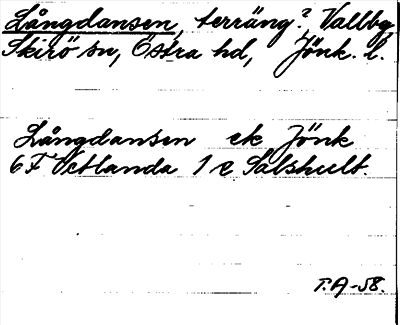 Långdansen, terräng? Vallby
Skirö sn, Östra hd, Jönk. l.
Långdansen ek Jönk
6F Vetlanda 1 e Salshult.
T.A-58.